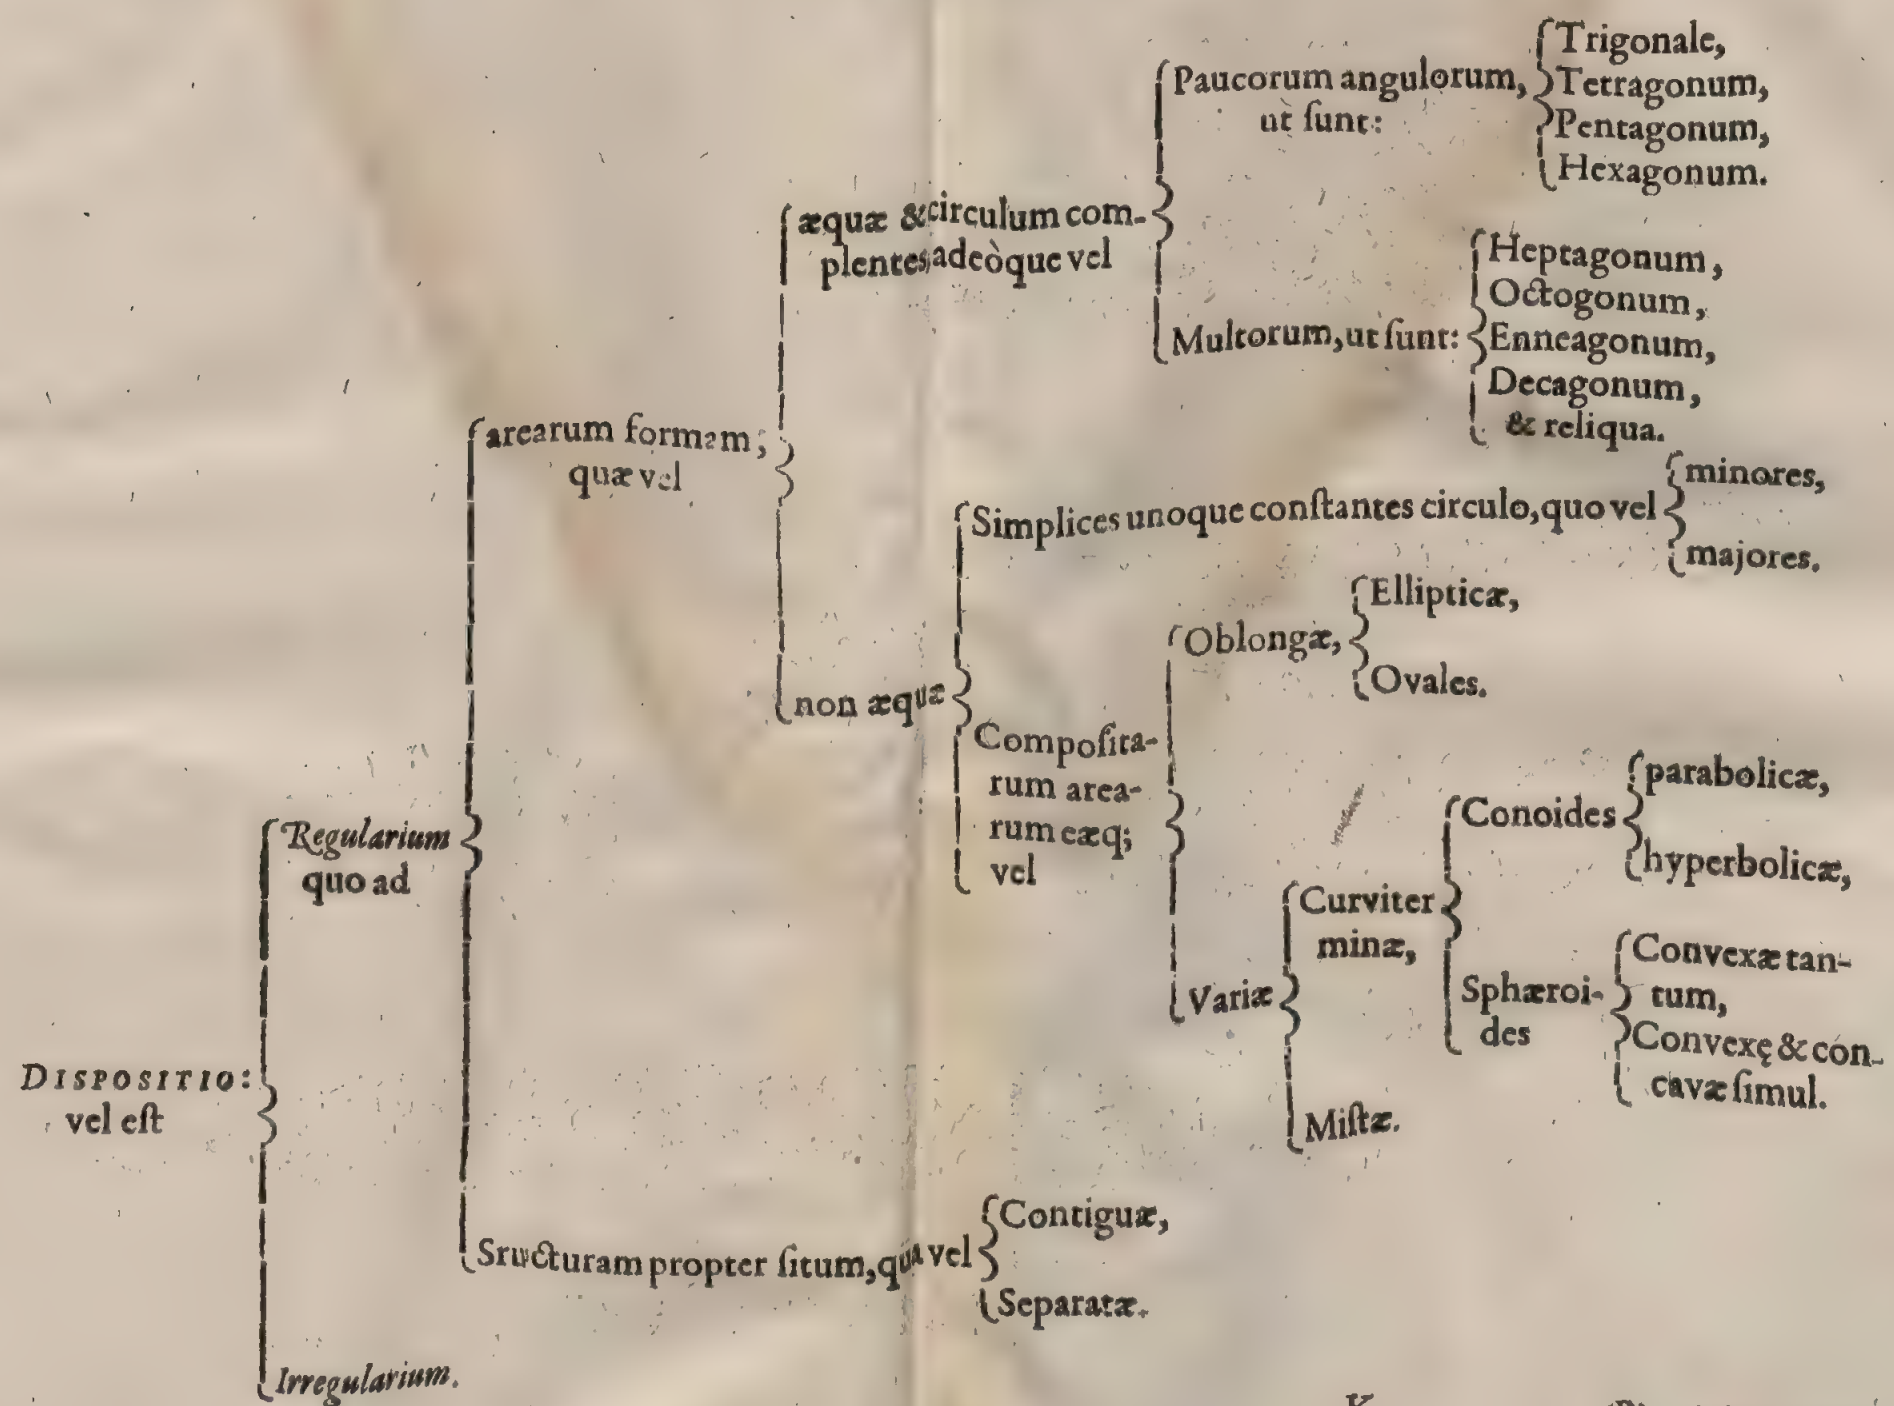 DISPOSITIO:
vel eſt
Regularium
quo ad
arearum formam;
quæ vel
æquæ & circulum com-
plentes, adeòque vel
Paucorum angulorum,
ut ſunt:
Trigonale,
Tetragonum,
Pentagonum,
Hexagonum.
Multorum, ut ſunt:
Heptagonum,
Octogonum,
Enneagonum,
Decagonum,
& reliqua.
non æquæ
Simplices unoque conſtantes circulo, quo vel
minores,
majores.
Compoſita-
rum area-
rum eæq;
vel
Oblongæ,
Ellipticæ,
Ovales.
Variæ
Curviter
minæ,
Conoides
parabolicæ,
hyperbolicæ,
Sphæroi-
des
Convexæ tan-
tum,
Convexę & con-
cavæ ſimul.
Miſtæ.
Sructuram propter ſitum, qua vel
Contiguæ,
Separatæ.
Irregularium.